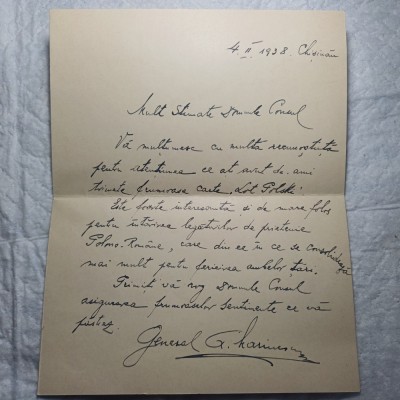 4. II. 1938. Chișinău
Mult Stimate Domnule Consul
Vă mulțumesc cu multă recunoștință
pentru atențiunea ce ați avut de-ami
trimete frumoasa carte "Lot Polski".
Este foarte interesantă și de mare folos
pentru întărirea legăturilor de prietenie
Polono-Române, care din ce în ce se consolidează
mai mult pentru fericirea ambelor țări.
Primiți vă rog Domnule Consul
asigurarea frumoaselor sentimente ce vă
păstrez.
General G.